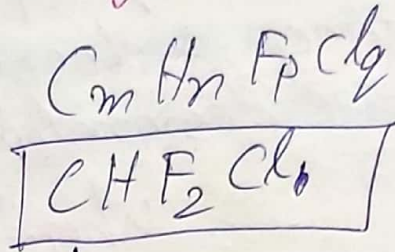 Cm Hn Fp Clq
CHF2Cl,